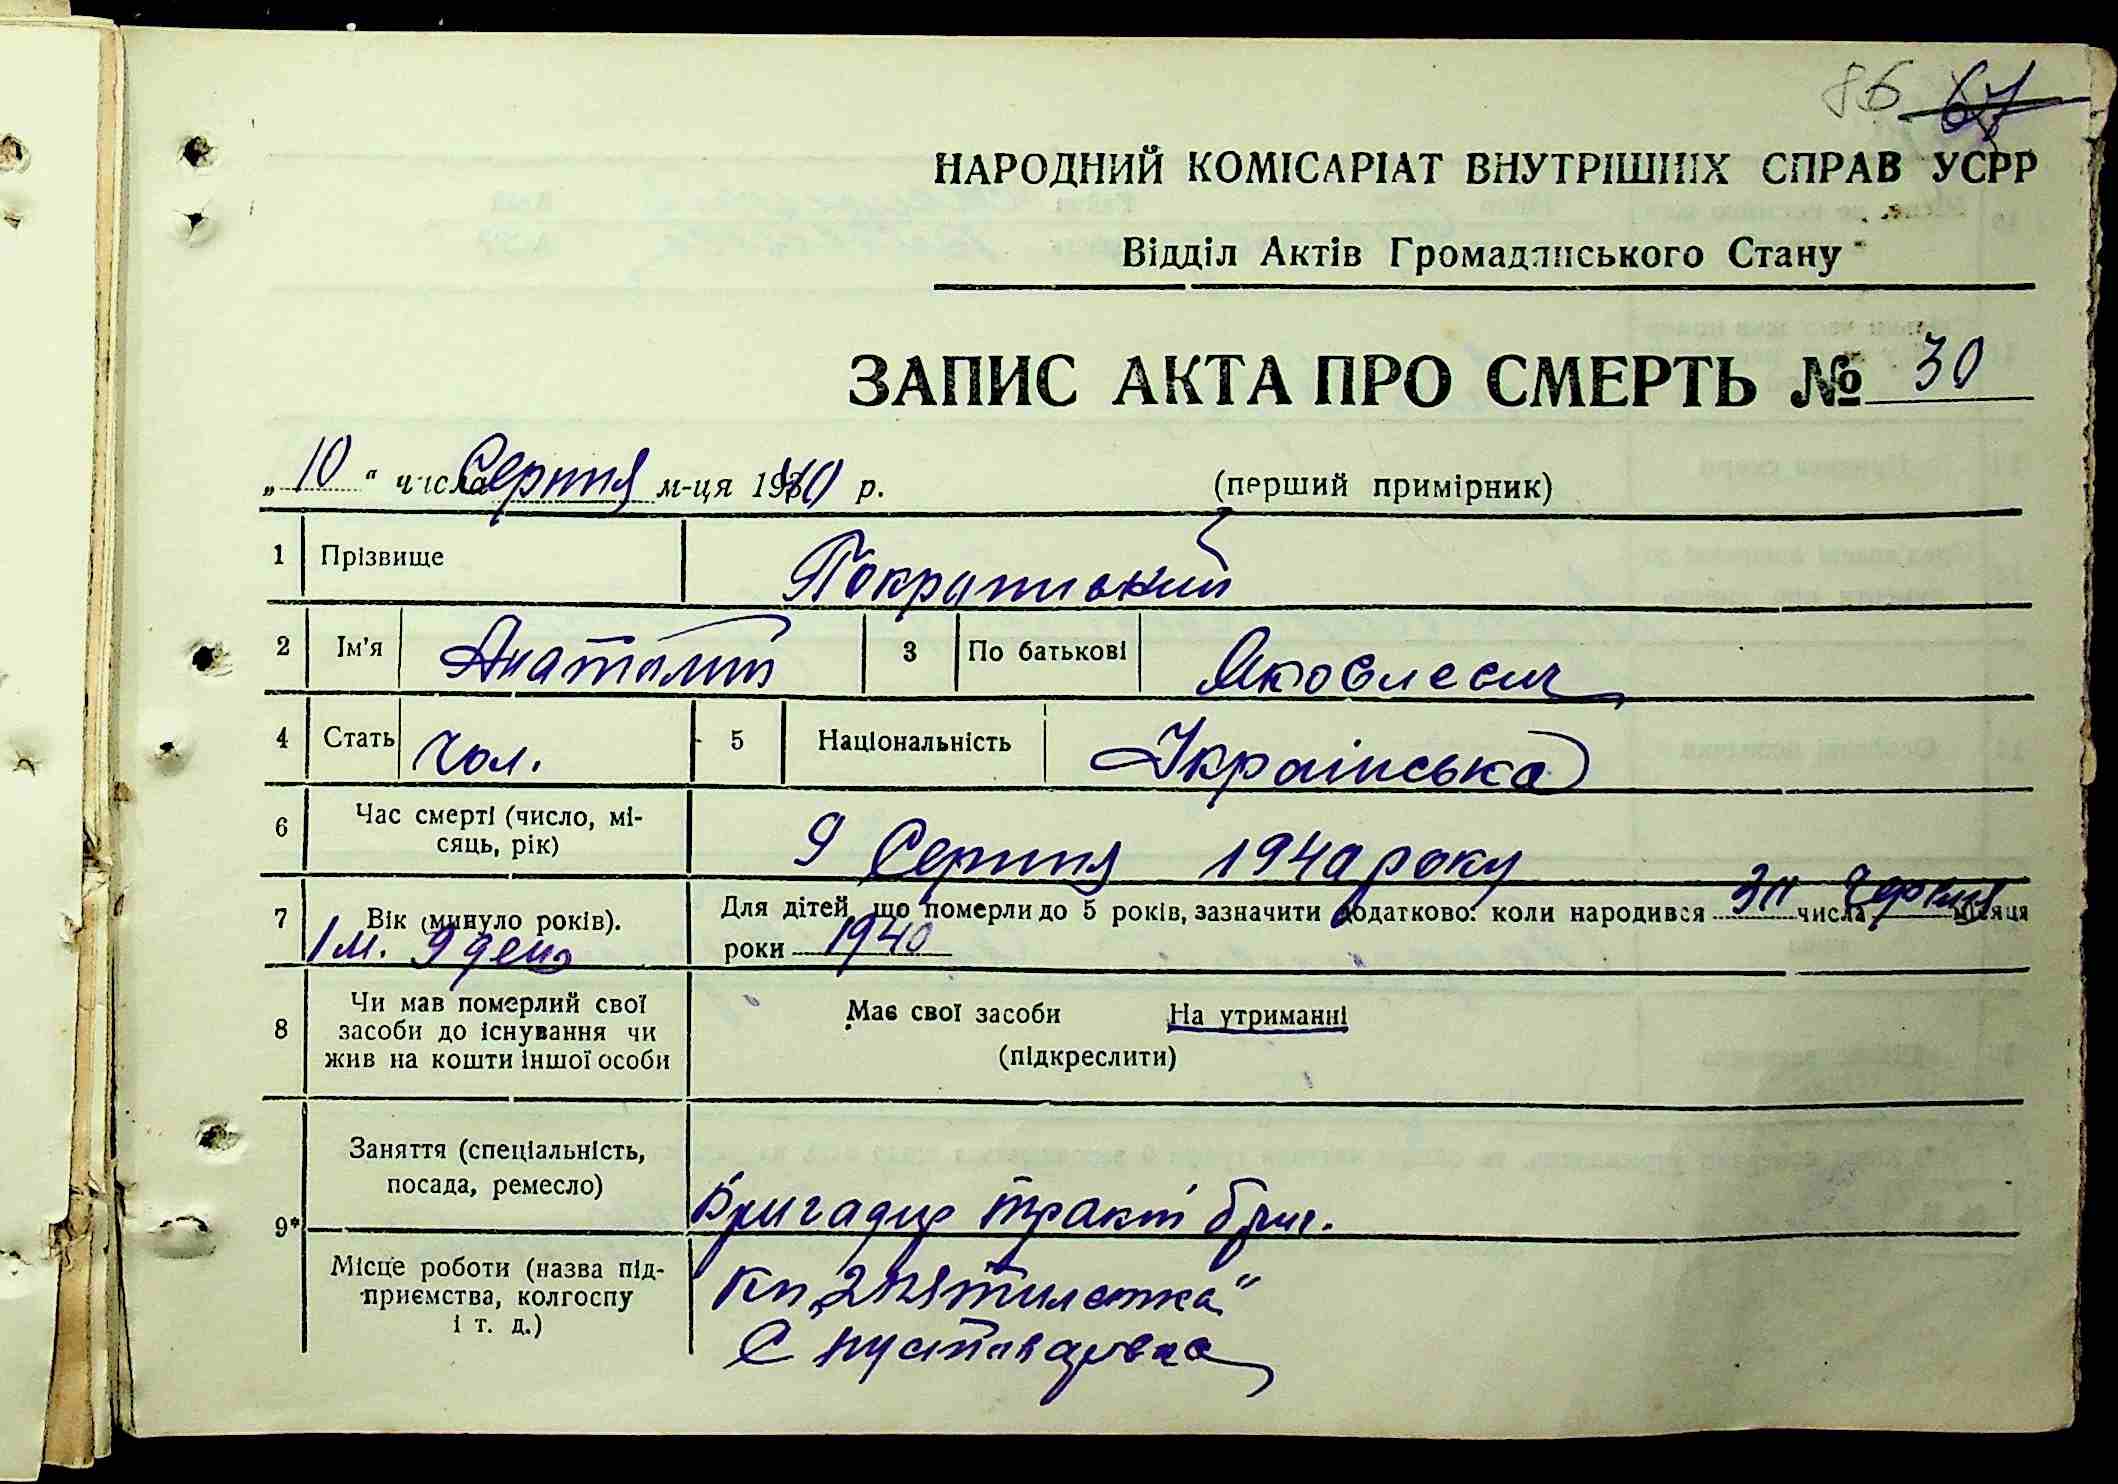 86 67
НАРОДНИЙ КОМІСАРІАТ ВНУТРІШНІХ СПРАВ УСРР
Відділ Актів Громадянського Стану
ЗАПИС АКТА ПРО СМЕРТЬ № 30
„10“ числа Серпня м-ця 1940 р. (перший примірник)
1 Прізвище
2 Ім'я Анатолій 3 По батькові Яковлевич
4 Стать чол. 5 Національність Українська
6 Час смерті (число, мі-
сяць, рік) 9 Серпня 1940 року
7 Вік (минуло років). 1 м. 9 ден Для дітей, що померли до 5 років, зазначити додатково: коли народився числа червня місяця
роки 1940
8 Чи мав померлий свої
засоби до існування чи
жив на кошти іншої особи
Має свої засоби На утриманні
(підкреслити)
9* Заняття (спеціальність,
посада, ремесло) Бригадир тракт бриг.
Місце роботи (назва під-
приємства, колгоспу
і т. д.)
Кп „2 пятилетка“
с